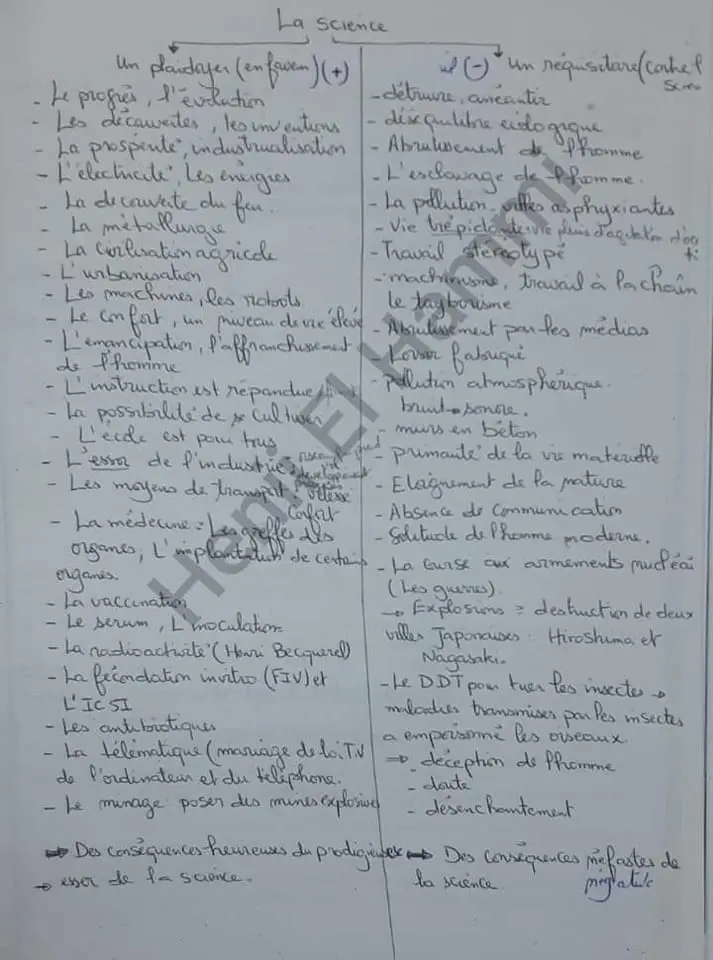 La science
Un plaidoyer (en faveur) (+)
- Le progrès, l'évolution
- Les découvertes, les inventions
- La prospérité, industrialisation
- L'électricité, Les énergies
- La découverte du feu.
- La métallurgie
- La civilisation agricole
- L'urbanisation
- Les machines, les robots
- Le confort, un niveau de vie élevé
- L'émancipation, l'affranchissement
de l'homme
- L'instruction est répandue
- La possibilité de se cultiver
- L'école est pour tous
- L'essor de l'industrie
développement
- Les moyens de transport
vitesse
confort
- La médecine : Les greffes des
organes, L'implantation de certains
organes.
- La vaccination
- Le serum, L'inoculation
- La radioactivité (Henri Becquerel)
- La fécondation invitro (FIV) et
L'ICSI
- Les antibiotiques
- La télématique (mariage de la T.V
de l'ordinateur et du téléphone.
- Le minage : poser des mines explosives
⇒ Des conséquences heureuses du prodigieux
→ essor de la science.
(-) Un réquisitoire (contre l
Scien
- détruire, anéantir
- déséquilibre écologique
- Abrutissement de l'homme
- L'esclavage de l'homme.
- La pollution. villes asphyxiantes
- Vie trépidante vie pleine d'agitation
- Travail stéréotypé
- machinisme, travail à la chaîn
le taylorisme
- Abrutissement par les médias
- Loisir fabriqué
- pollution atmosphérique.
bruit → sonore.
- murs en béton
- primauté de la vie matérielle
- Eloignement de la nature
- Absence de communication
- Solitude de l'homme moderne.
- La course aux armements nucléai
(Les guerres)
→ Explosions = destruction de deux
villes Japonaises : Hiroshima et
Nagasaki.
- Le DDT pour tuer les insectes →
maladies transmises par les insectes
a empoisonné les oiseaux.
⇒ déception de l'homme
- doute
- désenchantement
⇒ Des conséquences néfastes de
la science négatives
Henii El Hammi